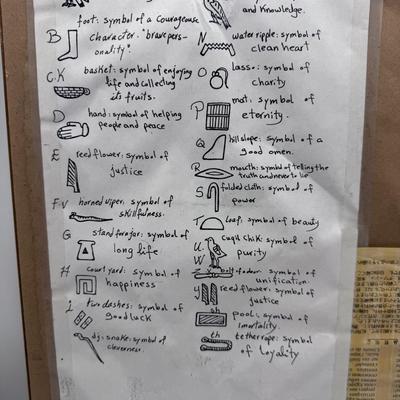 foot: symbol of a Courageouse
B character. "brave pers-
onality".
C.K basket: symbol of enjoying
life and collecting
its fruits.
D hand: symbol of helping
people and peace
E reed flower: symbol of
justice
F.V horned viper: symbol of
skilfulness.
G stand for jar: symbol of
long life
H court yard: symbol of
happiness
I two dashes: symbol of
good luck
dj: snake: symbol of
cleverness.
and Knowledge.
N water ripple: symbol of
clean heart
O lasso: symbol of
charity
P mat: symbol of
eternity.
Q hill slope: symbol of a
good omen.
R mouth: symbol of telling the
truth and never to lie
S folded cloth: symbol of
power
T loaf: symbol of beauty
U W chik: symbol of
purity
bolt of door: symbol of
unification.
Y reed flower: symbol of
justice
sh pool: symbol of
imortality.
th tether rope: symbol
of loyality